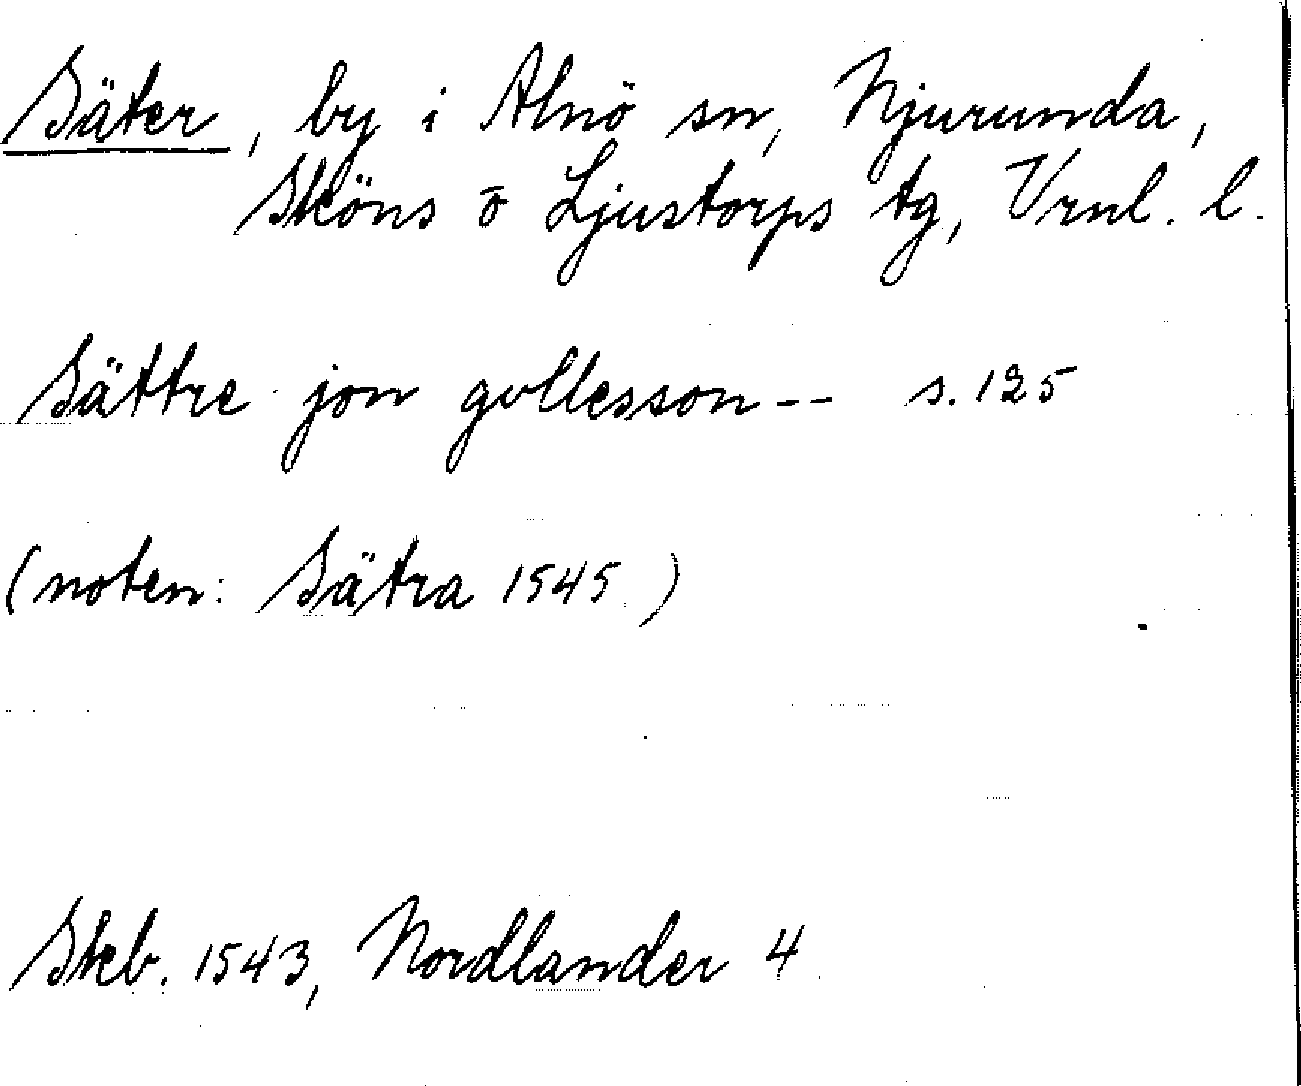 Säter, by i Alnö sn, Njurunda,
Sköns o Ljustorps tg, Vrnl. l.
Sättre jon gvllesson -- s. 125
(noten: Sätra 1545.)
Skb. 1543, Nordlander 4